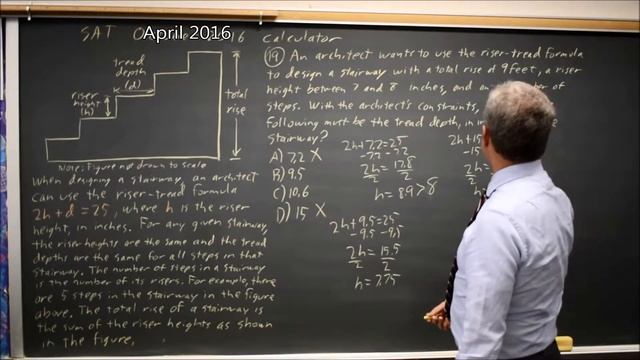 April 2016
SAT 16 calculator
tread
depth
(d)
riser
height
(h)
total
rise
Note: Figure not drawn to scale
When designing a stairway, an architect
can use the riser-tread formula
2h+d=25, where h is the riser
height, in inches. For any given stairway,
the riser heights are the same and the tread
depths are the same for all steps in that
stairway. The number of steps in a stairway
is the number of its risers. For example, there
are 5 steps in the stairway in the figure
above. The total rise of a stairway is
the sum of the riser heights as shown
in the figure.
19 An architect wants to use the riser-tread formula
to design a stairway with a total rise of 9 feet, a riser
height between 7 and 8 inches, and an of
steps. With the architect's constraints,
following must be the tread depth, in
stairway?
A) 7.2 X
B) 9.5
C) 10.6
D) 15 X
2h+7.2=25
-7.2 -7.2
2h = 17.8
2 2
h = 8.9 > 8
2h+9.5=25
-9.5 -9.5
2h = 15.5
2 2
h = 7.75
2h+15
-15
2h =
2
h